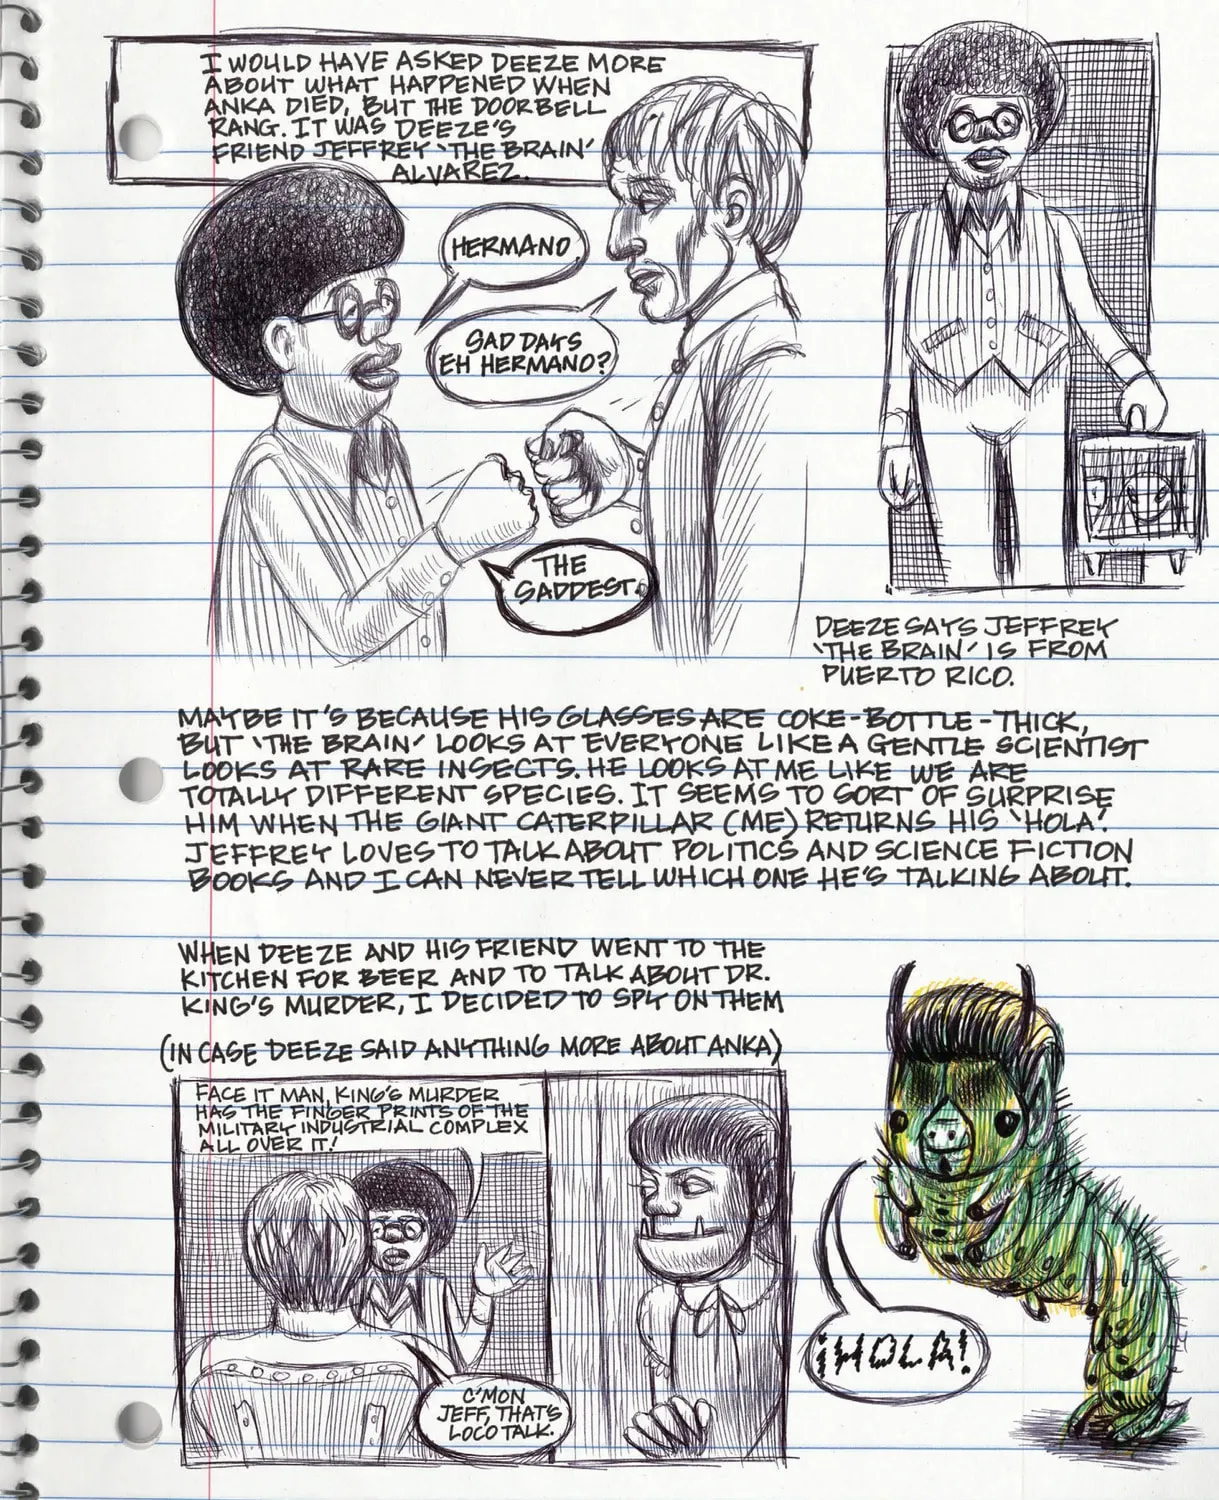 I WOULD HAVE ASKED DEEZE MORE
ABOUT WHAT HAPPENED WHEN
ANKA DIED, BUT THE DOORBELL
RANG. IT WAS DEEZE'S
FRIEND JEFFREY 'THE BRAIN'
ALVAREZ.
HERMANO.
SAD DAYS
EH HERMANO?
THE
SADDEST.
DEEZE SAYS JEFFREY
'THE BRAIN' IS FROM
PUERTO RICO.
MAYBE IT'S BECAUSE HIS GLASSES ARE COKE-BOTTLE-THICK,
BUT 'THE BRAIN' LOOKS AT EVERYONE LIKE A GENTLE SCIENTIST
LOOKS AT RARE INSECTS. HE LOOKS AT ME LIKE WE ARE
TOTALLY DIFFERENT SPECIES. IT SEEMS TO SORT OF SURPRISE
HIM WHEN THE GIANT CATERPILLAR (ME) RETURNS HIS 'HOLA'.
JEFFREY LOVES TO TALK ABOUT POLITICS AND SCIENCE FICTION
BOOKS AND I CAN NEVER TELL WHICH ONE HE'S TALKING ABOUT.
WHEN DEEZE AND HIS FRIEND WENT TO THE
KITCHEN FOR BEER AND TO TALK ABOUT DR.
KING'S MURDER, I DECIDED TO SPY ON THEM
(IN CASE DEEZE SAID ANYTHING MORE ABOUT ANKA)
FACE IT MAN, KING'S MURDER
HAS THE FINGER PRINTS OF THE
MILITARY INDUSTRIAL COMPLEX
ALL OVER IT!
C'MON
JEFF, THAT'S
LOCO TALK.
¡HOLA!